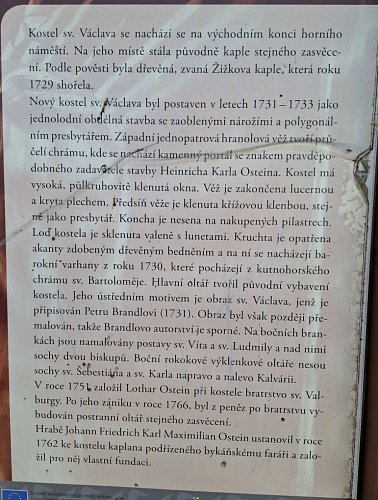 Kostel sv. Václava se nachází se na východním konci horního
náměstí. Na jeho místě stála původně kaple stejného zasvěce-
ní. Podle pověsti byla dřevěná, zvaná Žižkova kaple, která roku
1729 shořela.
Nový kostel sv. Václava byl postaven v letech 1731–1733 jako
jednolodní obdélná stavba se zaoblenými nárožími a polygonál-
ním presbytářem. Západní jednopatrová hranolová věž tvoří prů-
čelí chrámu, kde se nachází kamenný portál se znakem pravděpo-
dobného zadavatele stavby Heinricha Karla Osteina. Kostel má
vysoká, půlkruhovitě klenutá okna. Věž je zakončena lucernou
a kryta plechem. Předsíň věže je klenuta křížovou klenbou, stej-
ně jako presbytář. Koncha je nesena na nakupených pilastrech.
Loď kostela je sklenuta valeně s lunetami. Kruchta je opatřena
akanty zdobeným dřevěným bedněním a na ní se nacházejí ba-
rokní varhany z roku 1730, které pocházejí z kutnohorského
chrámu sv. Bartoloměje. Hlavní oltář tvořil původní vybavení
kostela. Jeho ústředním motivem je obraz sv. Václava, jenž je
připisován Petru Brandlovi (1731). Obraz byl však později pře-
malován, takže Brandlovo autorství je sporné. Na bočních bran-
kách jsou namalovány postavy sv. Víta a sv. Ludmily a nad nimi
sochy dvou biskupů. Boční rokokové výklenkové oltáře nesou
sochy sv. Šebestiána a sv. Karla napravo a nalevo Kalvárii.
V roce 1751 založil Lothar Ostein při kostele bratrstvo sv. Val-
burgy. Po jeho zániku v roce 1766, byl z peněz po bratrstvu vy-
budován postranní oltář stejného zasvěcení.
Hrabě Johann Friedrich Karl Maximilian Ostein ustanovil v roce
1762 ke kostelu kaplana podřízeného bykáňskému faráři a zalo-
žil pro něj vlastní fundaci.